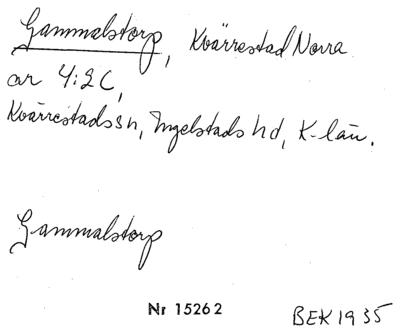 Gammalstorp, Kvärrestad Norra
ar 4:2 C,
Kvärrestads sn, Ingelstads hd, K-län.
Gammalstorp
Nr 15262
BEK 1935